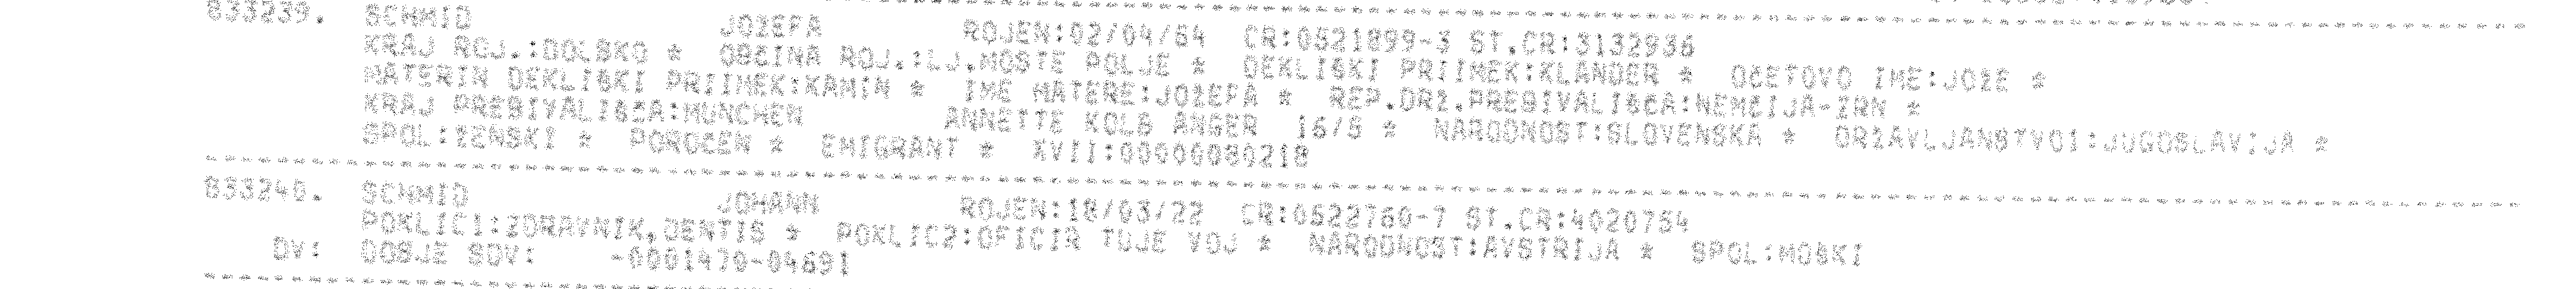 833239. SCHMID JOŽEFA ROJEN:02/04/64 CR:0521899-3 ST.CR:3132936
KRAJ ROJ.:DOLSKO * OBČINA ROJ.:LJ.MOSTE POLJE * DEKLIŠKI PRIIMEK:KLANDER * OČETOVO IME:JOŽE *
MATERIN DEKLIŠKI PRIIMEK:KAMIN * IME MATERE:JOŽEFA * REP.DRŽ.PREBIVALIŠČA:NEMČIJA-ZRN *
KRAJ PREBIVALIŠČA:MUNCHEN ANNETTE KOLB ANGER 16/5 * NARODNOST:SLOVENSKA * DRŽAVLJANSTVO1:JUGOSLAVIJA *
SPOL:ŽENSKI * POROČEN * EMIGRANT * XVII:00000080218
833240. SCHMID JOHANN ROJEN:18/03/22 CR:0522760-7 ST.CR:4020754
POKLIC1:ZDRAVNIK,DENTIS * POKLIC2:OFICIR TUJE VOJ * NARODNOST:AVSTRIJA * SPOL:MOŠKI
DV: DOSJE SDV: -0001470-04691